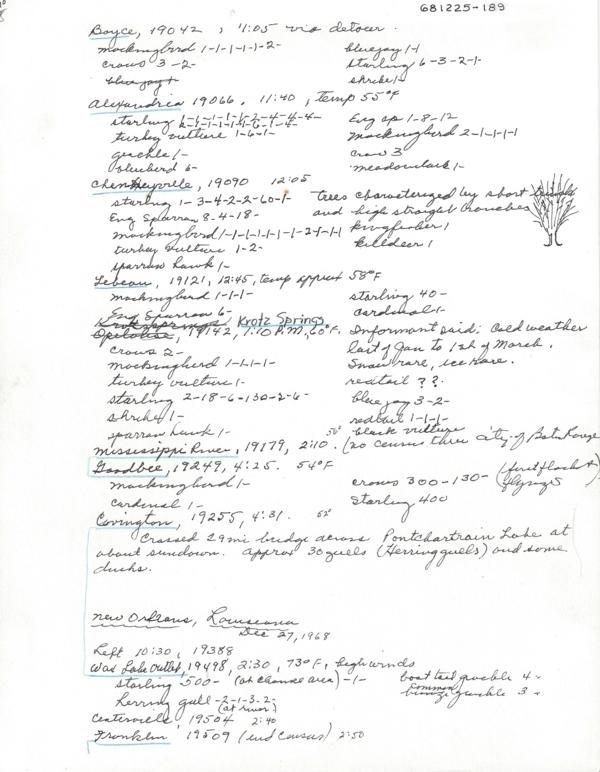 681225-189
Boyce, 19042, 11:05 via detour.
mockingbird 1-1-1-1-1-2- bluejay 1-1
crows 3-2- starling 6-3-2-1-
bluejay 1 shrike 1-
Alexandria 19066, 11:40, temp 55°F
starling 1-6-1-1-1-2-4-4-4-
Eng sp 1-8-12
turkey vulture 1-6-1- mockingbird 2-1-1-1-1
grackle 1- crow 3
bluebird 6- meadowlark 1-
Cheneyville, 19090 12:05
starling 1-3-4-2-2-60-1- trees characterized by short
Eng Sparrow 8-4-18- and high straight branches
mockingbird 1-1-1-1-1-1-1-2-1-1-1 kingfisher 1
turkey vulture 1-2- killdeer 1
sparrow hawk 1-
Lebeau, 19121, 12:45, temp approx 58°F
mockingbird 1-1-1- starling 40-
Eng Sparrow 6- cardinal 1-
Krotz Springs
Opelousas, 19142, 1:10 P.M, 60°F. Informant said: Cold weather
crows 2- last of Jan to 1st of March.
mockingbird 1-1-1-1- Snow rare, ice rare.
turkey vulture 1- redtail ??
starling 2-18-6-130-2-6- blue jay 3-2-
shrike 1- redtail 1-1-1-
sparrow hawk 1- black vulture
Mississippi River, 19179, 2:10. (no census thru city of Baton Rouge
Goodbee, 19249, 4:25. 54°F
mockingbird 1- crows 300-130- (first flock flying S
cardinal 1- Starling 400
Covington, 19255, 4:31. 52°
Crossed 29 mi bridge across Pontchartrain Lake at
about sundown. approx 30 gulls (Herring gulls) and some
ducks.
New Orleans, Louisiana
Dec 27, 1968
Left 10:30, 19388
Wax Lake Outlet, 19498, 2:30, 73°F, high winds
starling -500- -1- boat tail grackle 4-
herring gull -2-1-3-2- common bronze grackle 3-
(at river)
Centerville 19504 2:40
Franklin 19509 (end census) 2:50